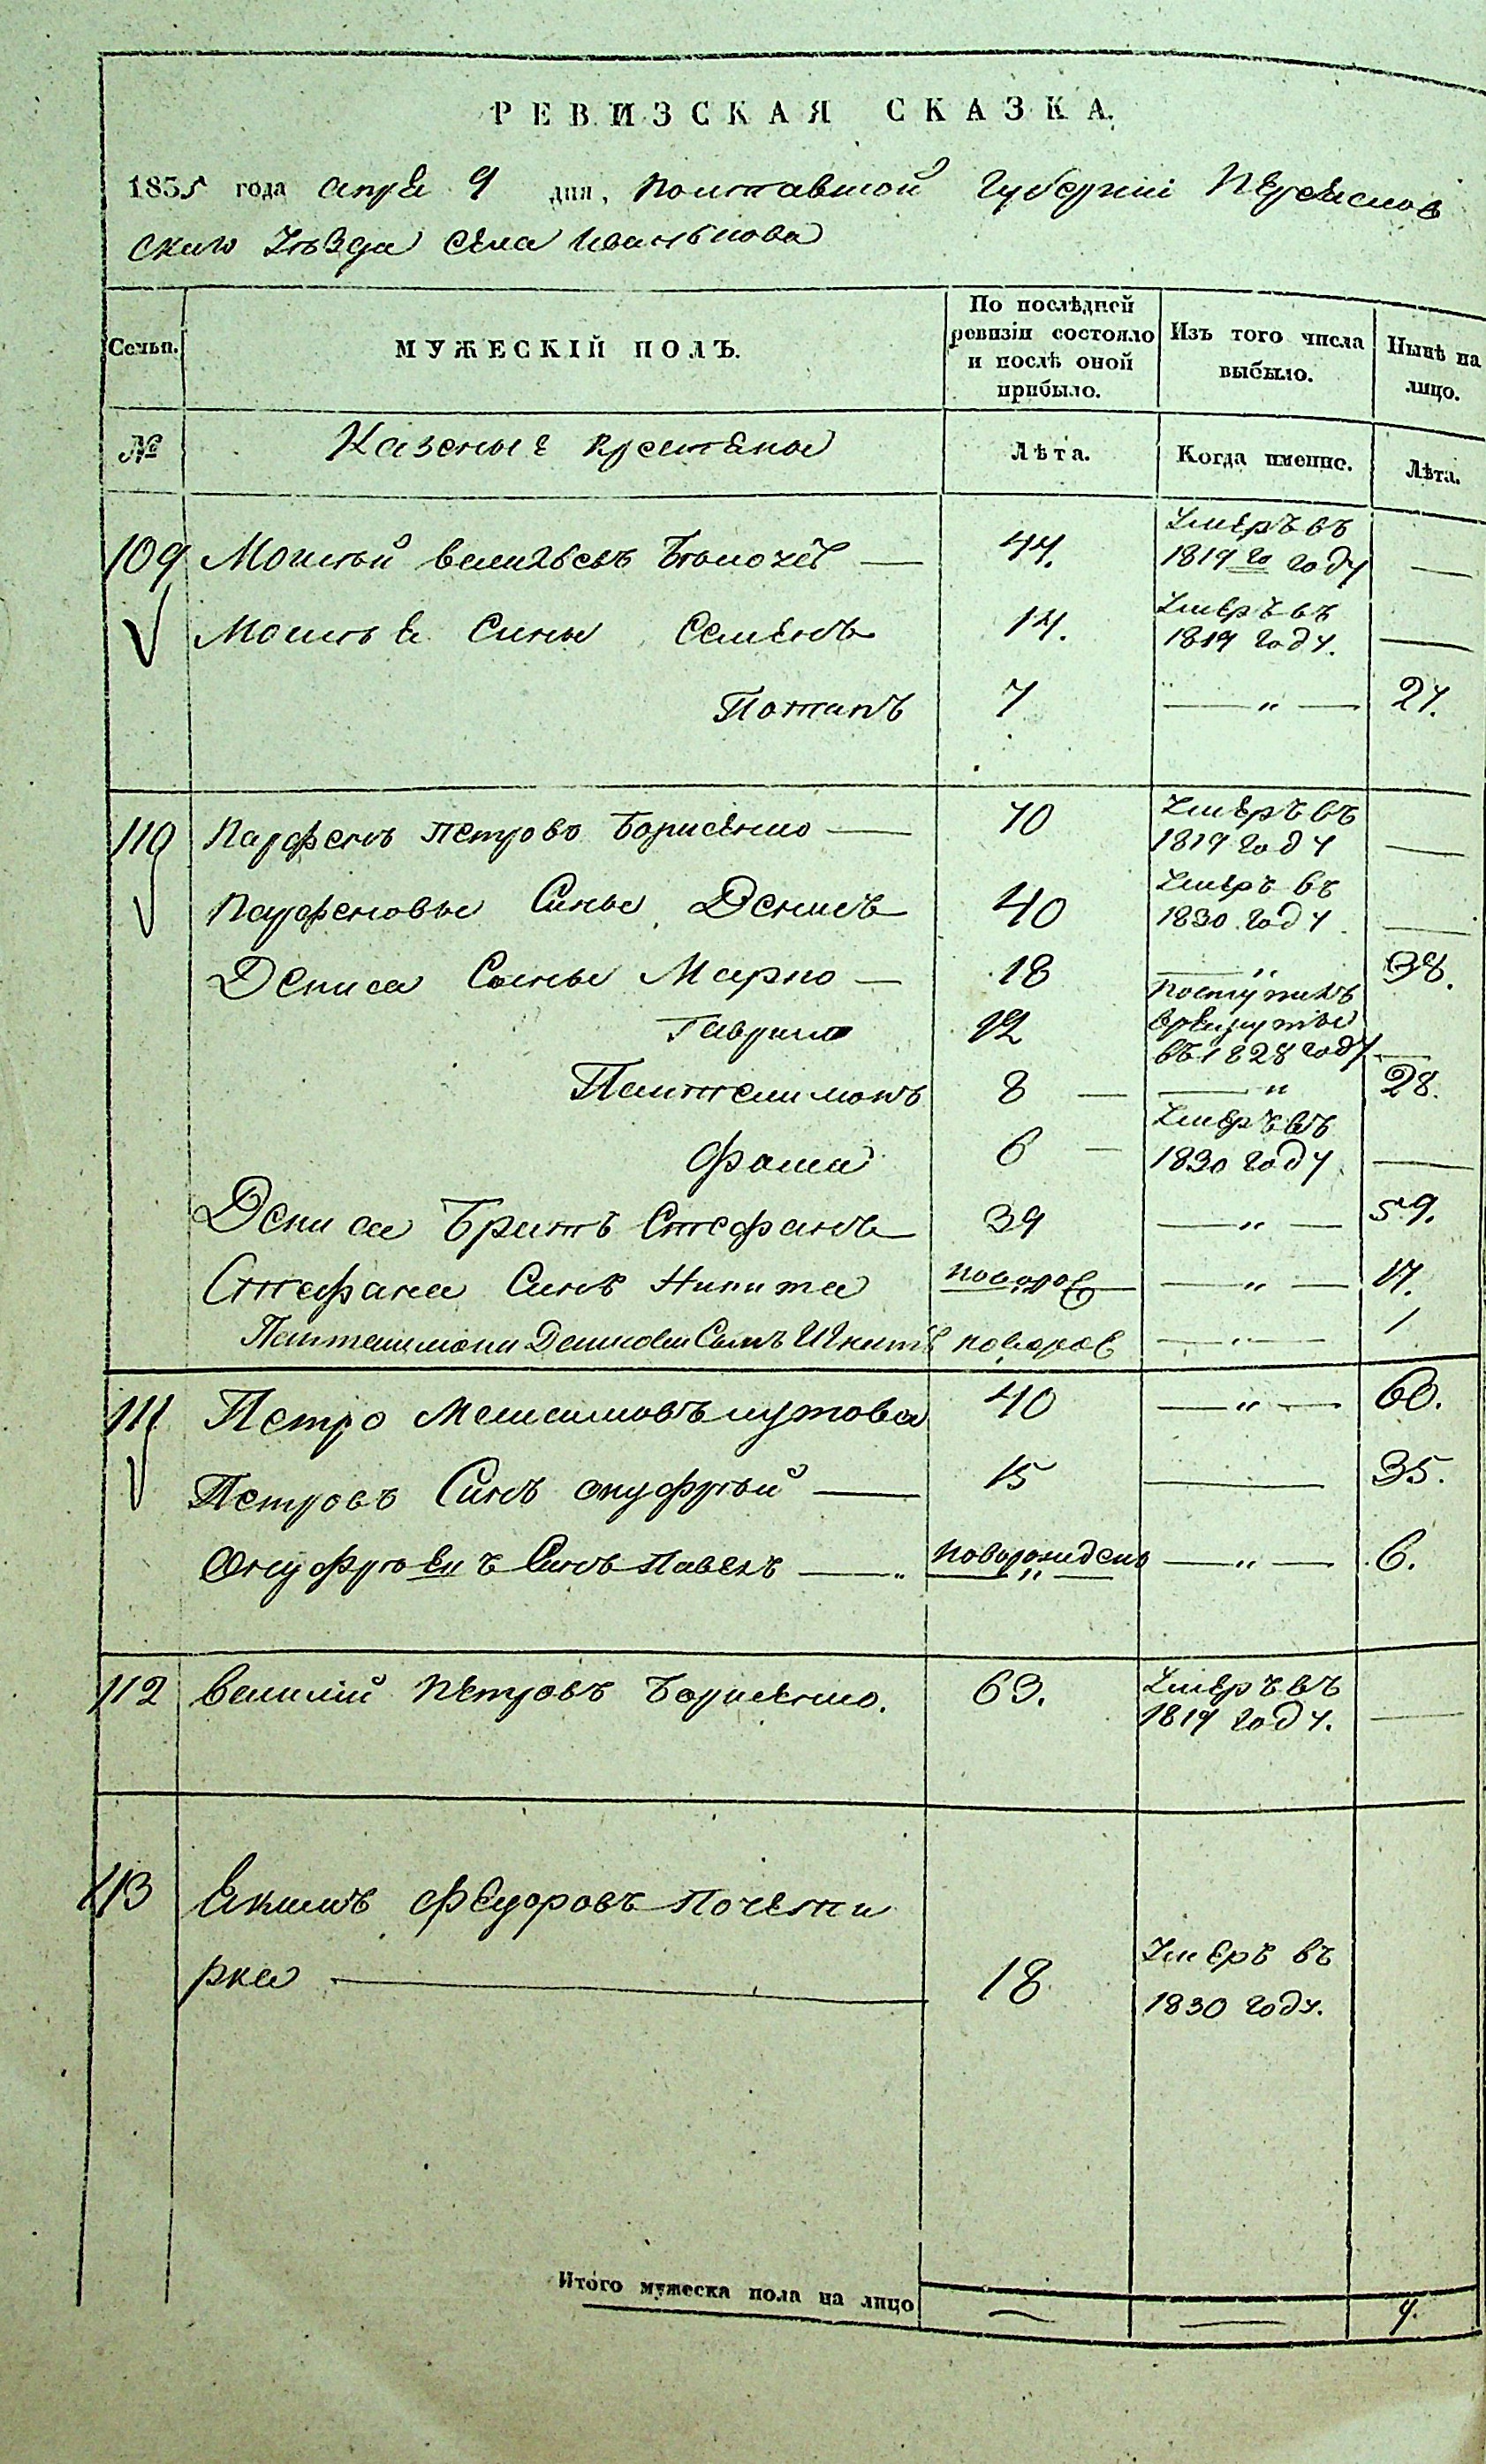 РЕВИЗСКАЯ СКАЗКА.
1835 года апреля 9 дня, Полтавской Губернии Переяслов
ского Уезда Села Иванькова
Семьи.
МУЖЕСКІЙ ПОЛЪ.
По послѣдней ревизіи состояло и послѣ оной прибыло.
Изъ того числа выбыло.
Нынѣ на лицо.
№ Казеные крестяны Лѣта. Когда именно. Лѣта.
109 Мойсей 44. Умеръ въ 1819 го году —
Мойсея Сины Семенъ 14. Умеръ въ 1819 году. —
Потапъ 7 — „ — 27.
110 Парфенъ Петровъ Борисенко — 70 Умеръ въ 1819 году —
Парфеновы Сины Денисъ 40 Умеръ въ 1830 году —
Дениса Сыны Марко — 18 — „ 38.
Гаврило 12 Поступилъ врекруты въ 1828 году —
Пантелимонъ 8 — — „ 28.
Фома 6 — Умеръ въ 1830 году —
Дениса Братъ Стефанъ 39 — „ — 59.
Стефана Синъ Никита новорож — „ — 17.
Пантелимона Денисова Сынъ Игнатъ новорож — „ — 1
111 Петро Максимовъ 40 — „ — 60.
Петровъ Синъ Онуфрый — 15 — 35.
Онуфріевъ Синъ Павелъ — „ новорожденъ — „ — 6.
112 Василій Петровъ Борисенко. 63. Умеръ въ 1819 году. —
113 Екимъ Федоровъ Почети
рка — 18 Умеръ въ 1830 году.
Итого мужеска пола на лицо — — 7.